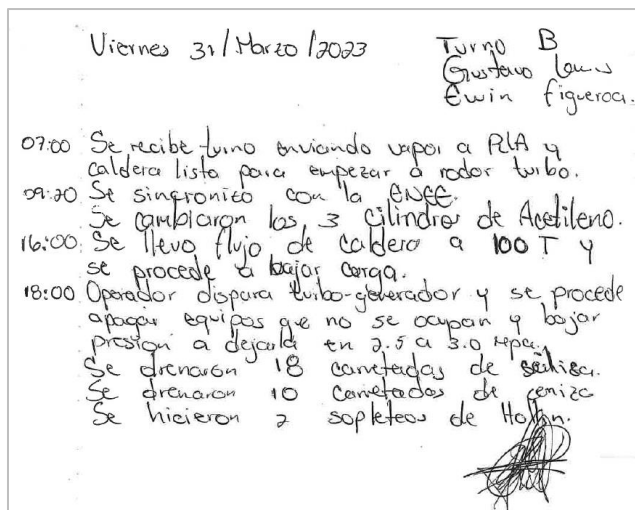 Viernes 31/Marzo/2023
Turno B
Gustavo
Ewin Figueroa.
07:00 Se recibe turno enviando vapor a PLA y
caldera lista para empezar a rodar turbo.
09:20 Se sincronizo con la ENEE.
Se cambiaron los 3 cilindros de Acetileno.
16:00 Se llevo flujo de caldera a 100 T y
se procede a bajar carga.
18:00 Operador dispara turbo-generador y se procede
apagar equipos que no se ocupan y bajar
presion a dejarla en 2.5 a 3.0 Mpa.
Se drenaron 18 carretadas de
Se drenaron 10 carretadas de ceniza
Se hicieron 2 sopleteos de Hollin.